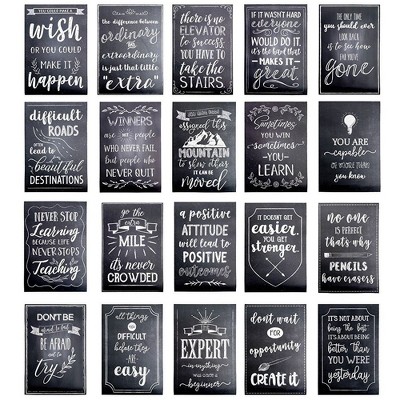 YOU COULD MAKE A
wish
OR YOU COULD
MAKE IT
happen
the difference between
ordinary
and
extraordinary
is just that little
"extra"
there is no
ELEVATOR
to success,
YOU HAVE TO
TAKE THE
STAIRS
IF IT WASN'T HARD
everyone
WOULD DO IT.
it's the hard that
MAKES IT
great.
THE ONLY TIME
YOU should ever
LOOK BACK
IS TO SEE HOW
FAR YOU'VE
gone
difficult
ROADS
often
LEAD to
beautiful
DESTINATIONS
WINNERS
are not people
WHO NEVER FAIL,
but people who
NEVER QUIT
YOU HAVE BEEN
assigned this
MOUNTAIN
to show others
IT CAN BE
moved
Sometimes
YOU WIN
sometimes
YOU
LEARN
YOU ARE
capable
OF MORE THAN
you know
NEVER STOP
Learning
BECAUSE LIFE
NEVER STOPS
Teaching
go the
extra
MILE
it's never
CROWDED
a positive
ATTITUDE
will lead to
POSITIVE
outcomes
IT DOESN'T GET
easier.
YOU GET
stronger.
no one
IS PERFECT
that's why
PENCILS
have erasers
DON'T BE
afraid to fail
BE AFRAID
not to
try
all things
are
DIFFICULT
before they
ARE
easy
THE
EXPERT
in anything
WAS ONCE A
beginner
don't wait
FOR
opportunity
CREATE IT
IT'S NOT ABOUT
being the best
IT'S ABOUT
being better
THAN YOU
WERE
yesterday